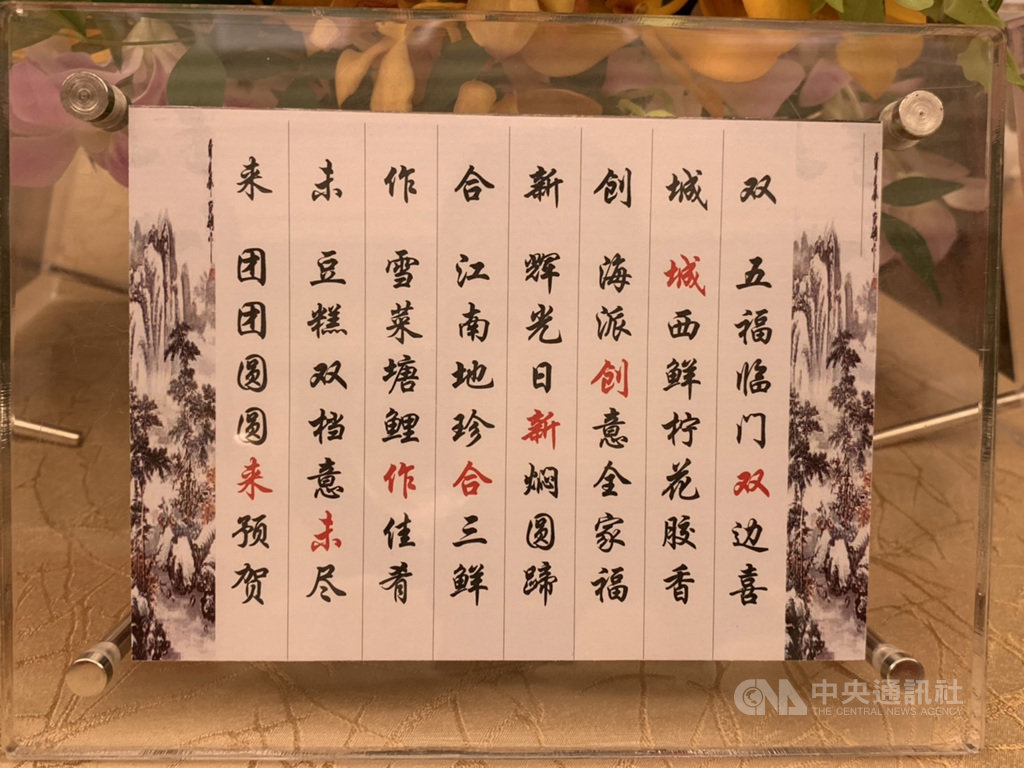 双 五福临门双边喜
城 城西鲜柠花胶香
创 海派创意全家福
新 辉光日新焖圆蹄
合 江南地珍合三鲜
作 雪菜塘鲤作佳肴
未 豆糕双档意未尽
来 团团圆圆来预贺
中央通訊社
THE CENTRAL NEWS AGENCY